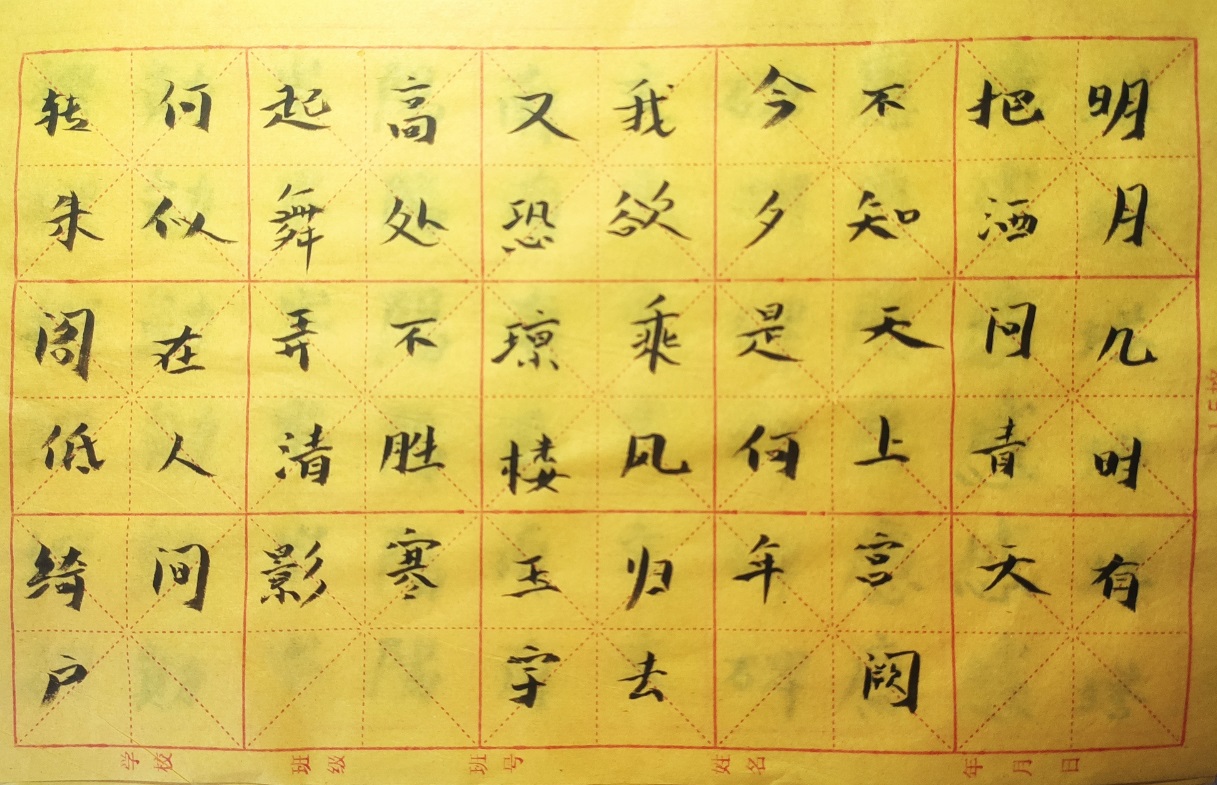 明月几时有
把酒问青天
不知天上宫阙
今夕是何年
我欲乘风归去
又恐琼楼玉宇
高处不胜寒
起舞弄清影
何似在人间
转朱阁低绮户
学校 班级 班号 姓名 年 月 日